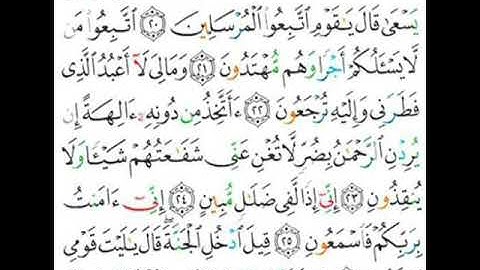 يَسْعَىٰ قَالَ يَـٰقَوْمِ ٱتَّبِعُوا۟ ٱلْمُرْسَلِينَ ٢٠ ٱتَّبِعُوا۟ مَن
لَّا يَسْـَٔلُكُمْ أَجْرًا وَهُم مُّهْتَدُونَ ٢١ وَمَالِىَ لَآ أَعْبُدُ ٱلَّذِى
فَطَرَنِى وَإِلَيْهِ تُرْجَعُونَ ٢٢ ءَأَتَّخِذُ مِن دُونِهِۦٓ ءَالِهَةً إِن
يُرِدْنِ ٱلرَّحْمَـٰنُ بِضُرٍّ لَّا تُغْنِ عَنِّى شَفَـٰعَتُهُمْ شَيْـًٔا وَلَا
يُنقِذُونِ ٢٣ إِنِّىٓ إِذًا لَّفِى ضَلَـٰلٍ مُّبِينٍ ٢٤ إِنِّىٓ ءَامَنتُ
بِرَبِّكُمْ فَٱسْمَعُونِ ٢٥ قِيلَ ٱدْخُلِ ٱلْجَنَّةَ ۖ قَالَ يَـٰلَيْتَ قَوْمِى